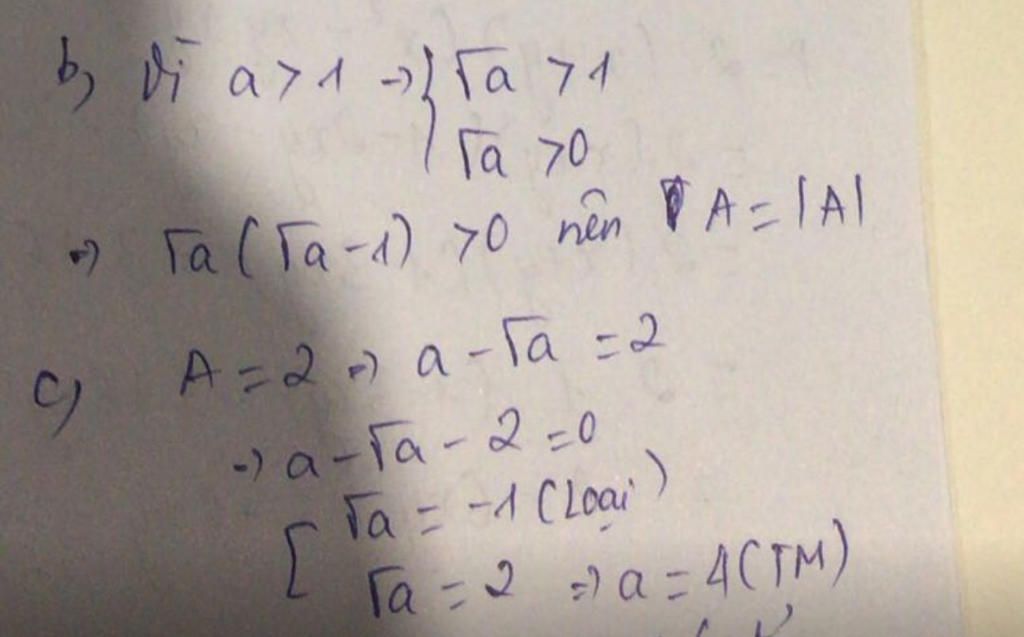 b, Vì a > 1 => { √a > 1
√a > 0
=> √a (√a - 1) > 0 nên A = |A|
c, A = 2 => a - √a = 2
=> a - √a - 2 = 0
[ √a = -1 (Loại)
√a = 2 => a = 4 (TM)